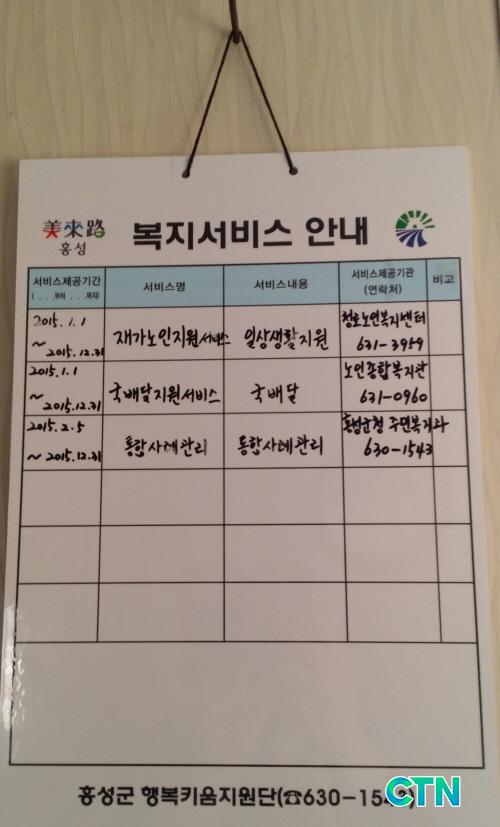 美來路
홍성
복지서비스 안내
서비스제공기간
( . . .부터 . . .까지)
서비스명
서비스내용
서비스제공기관
(연락처)
비고
2015.1.1
~ 2015.12.31
재가노인지원서비스
일상생활지원
청로노인복지센터
631-3959
2015.1.1
~ 2015.12.31
국배달지원서비스
국배달
노인종합복지관
631-0960
2015.2.5
~ 2015.12.31
통합사례관리
통합사례관리
홍성군청 주민복지과
630-1543
홍성군 행복키움지원단(☎630-1543)
CTN